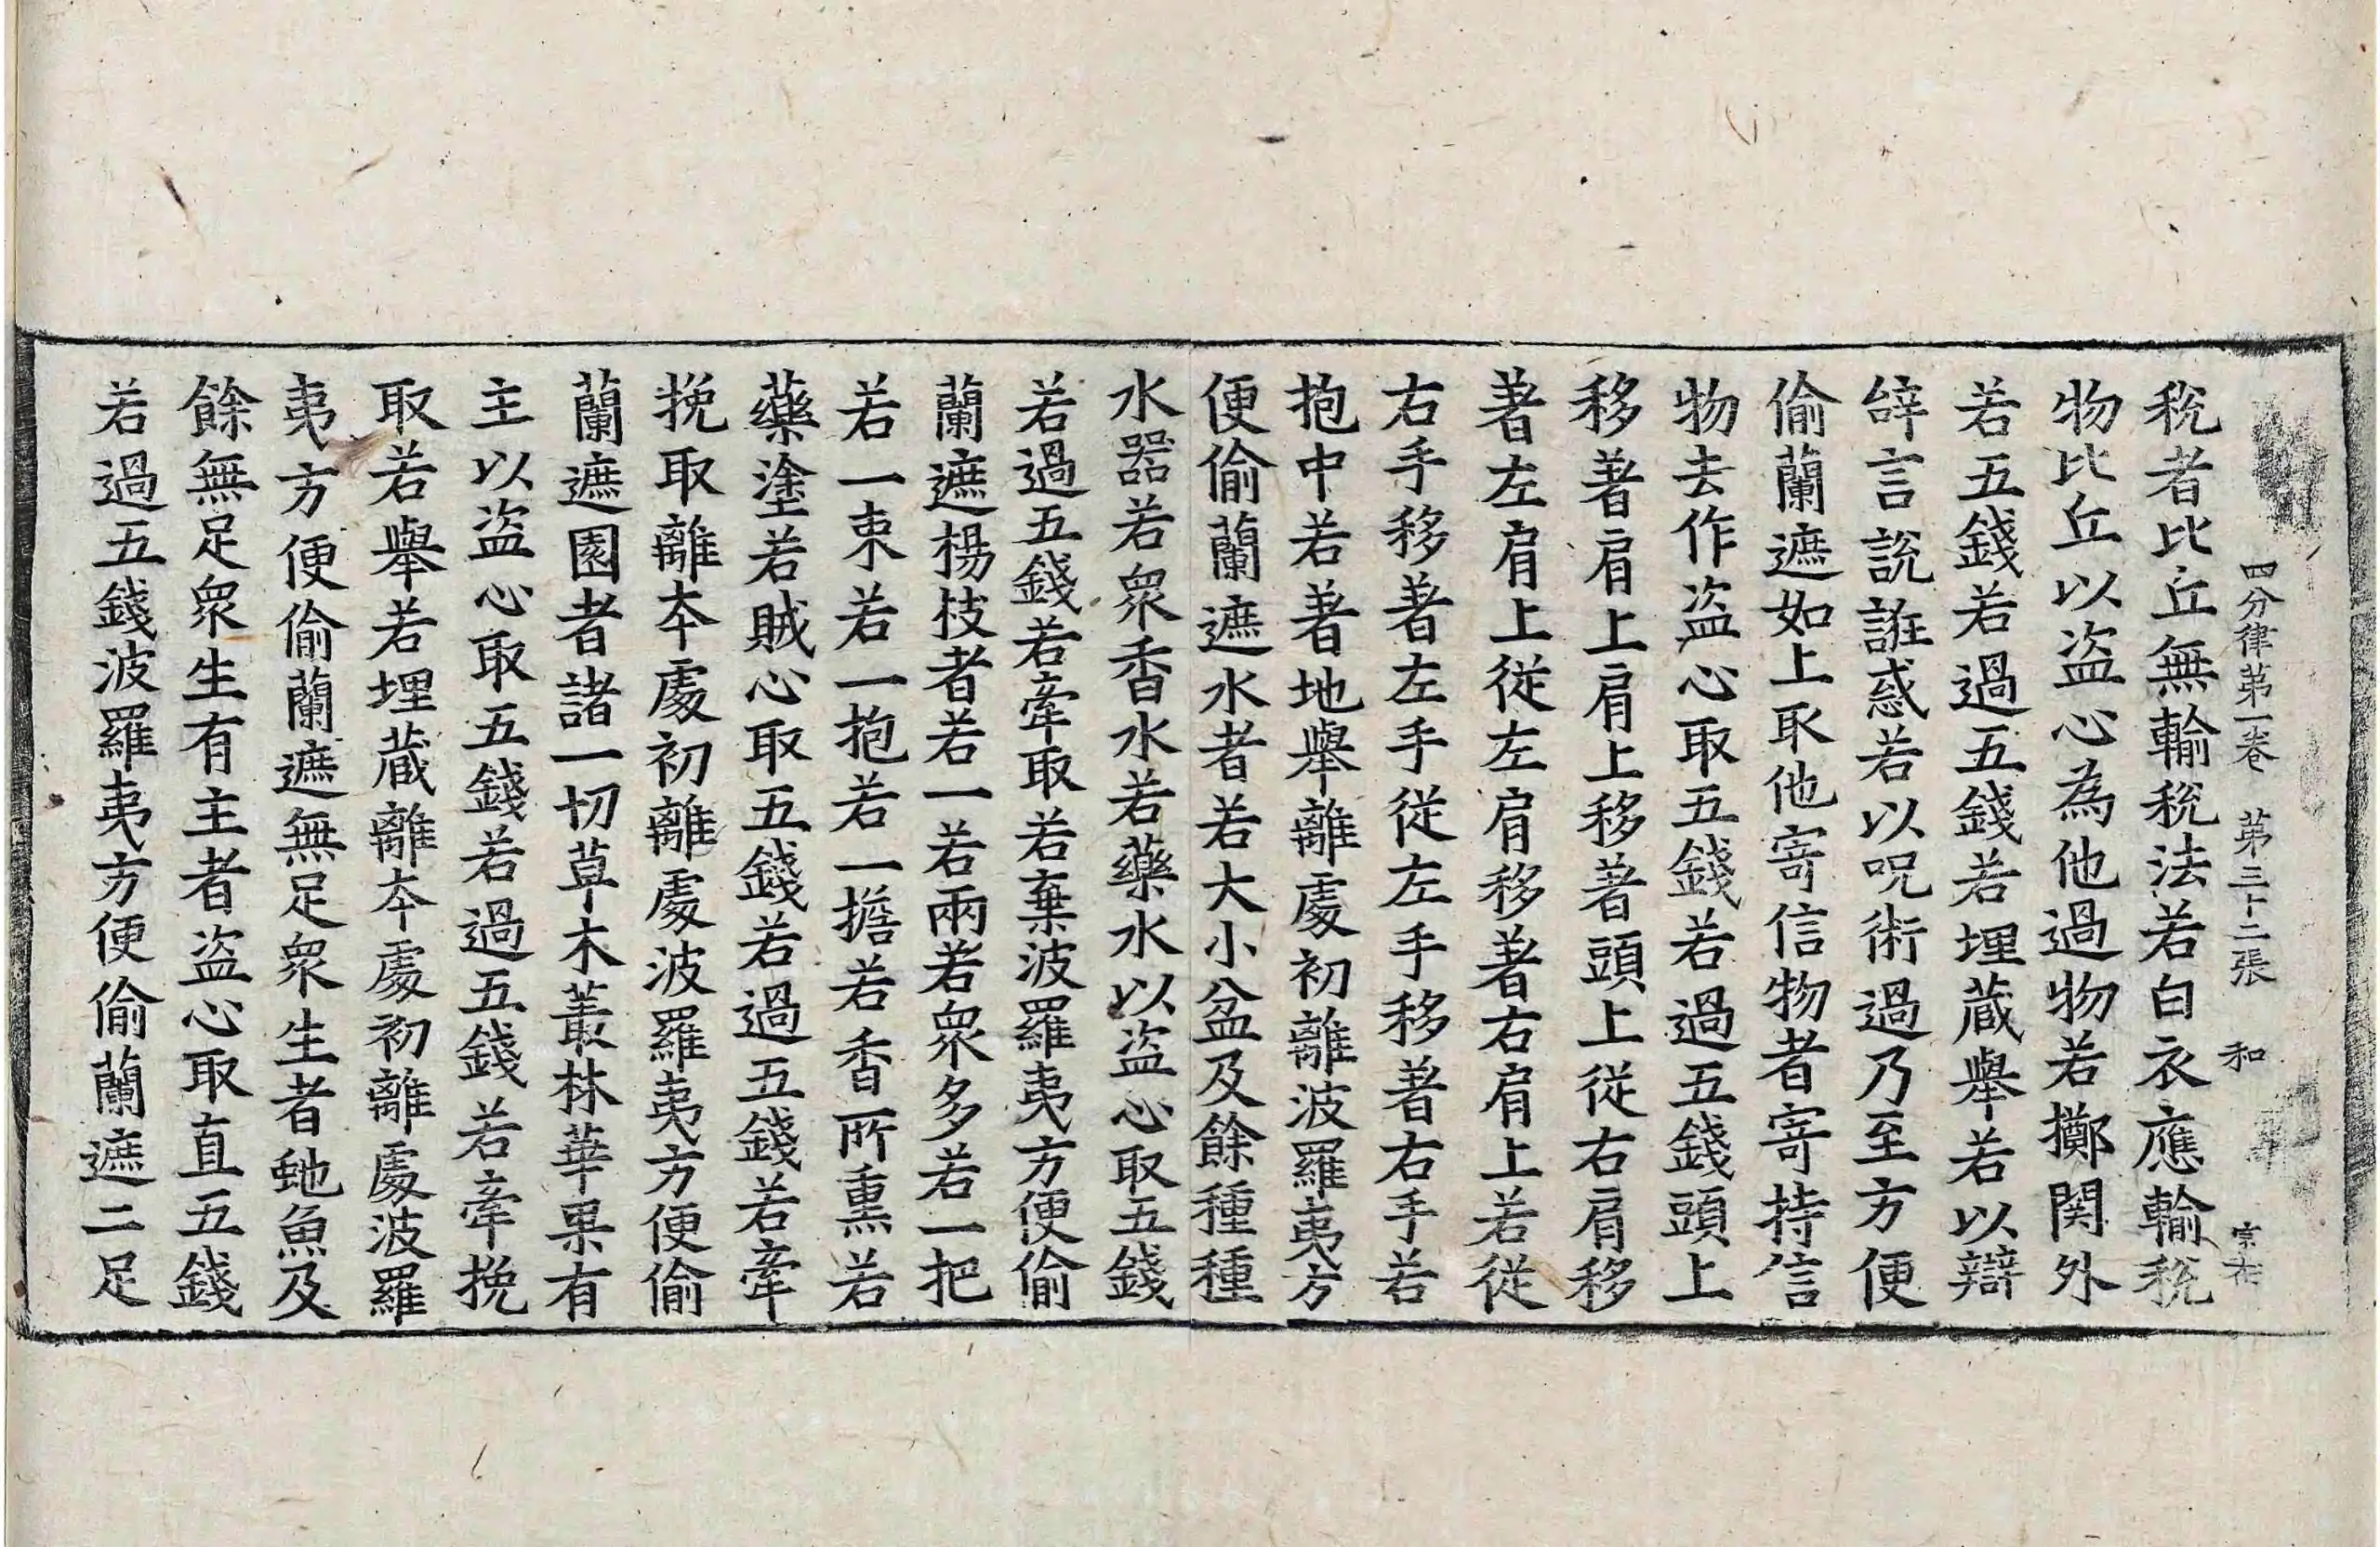 四分律第一卷 第三十二張 和
稅者比丘無輸稅法若白衣應輸稅
物比丘以盜心為他過物若擲関外
若五錢若過五錢若埋蔵舉若以辯
辝言說誑惑若以呪術過乃至方便
偷蘭遮如上取他寄信物者寄持信
物去作盜心取五錢若過五錢頭上
移著肩上肩上移著頭上從右肩移
著左肩上從左肩移著右肩上若從
右手移著左手從左手移著右手若
抱中若著地舉離處初離波羅夷方
便偷蘭遮水者若大小盆及餘種種
水器若衆香水若藥水以盜心取五錢
若過五錢若牽取若棄波羅夷方便偷
蘭遮楊枝者若一若兩若衆多若一把
若一束若一抱若一擔若香所熏若
藥塗若賊心取五錢若過五錢若牽
挽取離夲處初離處波羅夷方便偷
蘭遮園者諸一切草木叢林華果有
主以盜心取五錢若過五錢若牽挽
取若舉若埋蔵離夲處初離處波羅
夷方便偷蘭遮無足衆生者虵魚及
餘無足衆生有主者盜心取直五錢
若過五錢波羅夷方便偷蘭遮二足